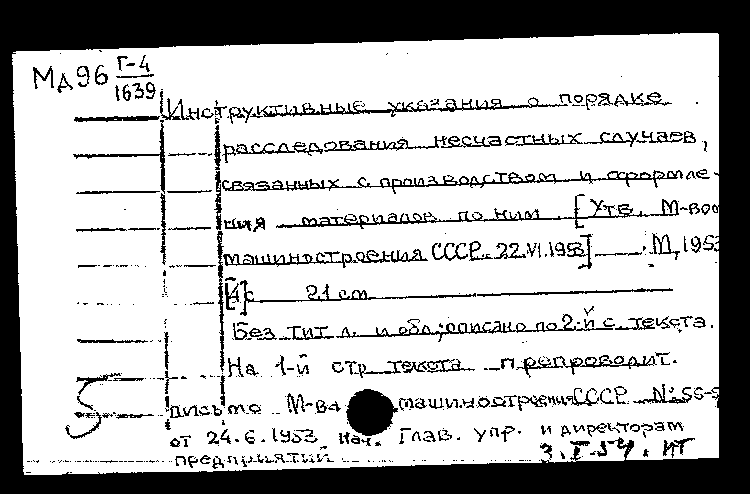 Мд96 Г-4
1639
Инструктивные указания о порядке
расследования несчастных случаев,
связанных с производством и оформле-
ния материалов по ним [Утв. М-вом
машиностроения СССР. 22.VI.1953] . М, 1953
[4]с 21 см
Без тит. л. и обл; описано по 2-й с. текста.
На 1-й стр текста препроводит.
5 письмо М-ва машиностроения СССР №
от 24.6.1953 нач. Глав. упр. и директорам
предприятий 3.I-54. ИТ